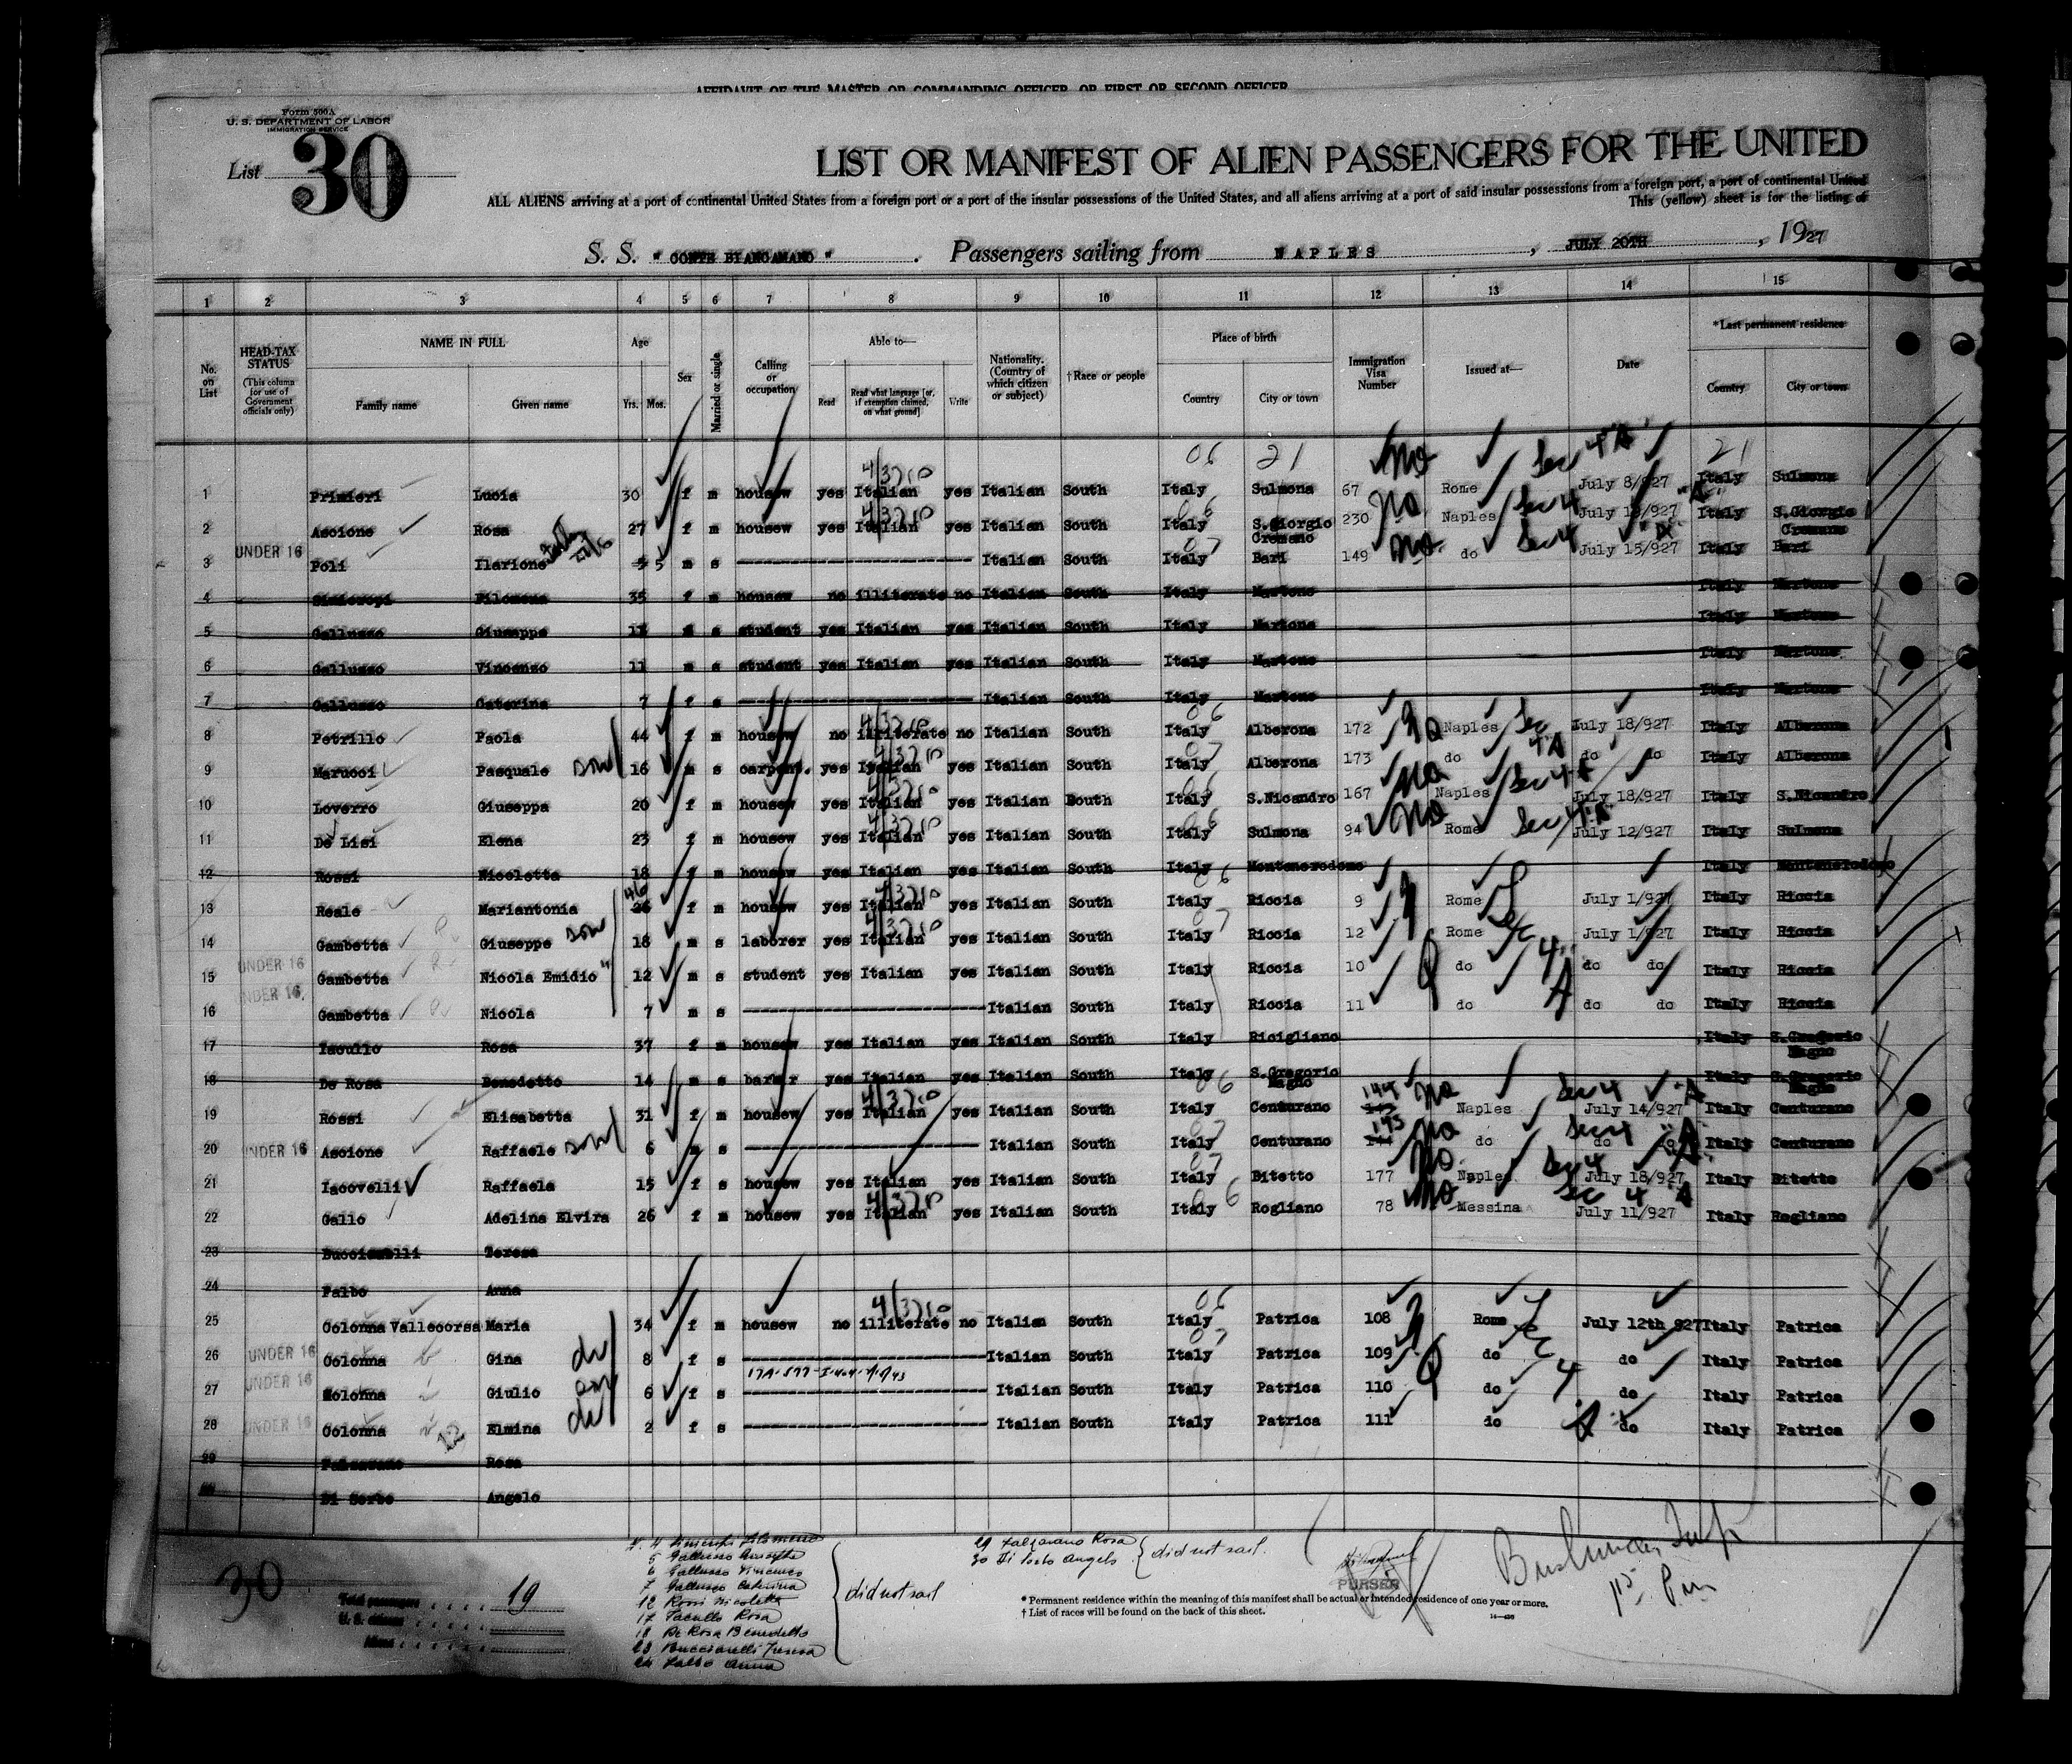 AFFIDAVIT OF THE MASTER OR COMMANDING OFFICER, OR FIRST OR SECOND OFFICER
Form 500A
U. S. DEPARTMENT OF LABOR
IMMIGRATION SERVICE
List 30
LIST OR MANIFEST OF ALIEN PASSENGERS FOR THE UNITED
ALL ALIENS arriving at a port of continental United States from a foreign port or a port of the insular possessions of the United States, and all aliens arriving at a port of said insular possessions from a foreign port, a port of continental United
This (yellow) sheet is for the listing of
S. S. " CONTE BIANCAMANO " . Passengers sailing from NAPLES , JULY 20TH , 1927
1 2 3 4 5 6 7 8 9 10 11 12 13 14 15
No. on List
HEAD-TAX STATUS
(This column for use of Government officials only)
NAME IN FULL
Family name Given name
Age
Yrs. Mos.
Sex
Married or single
Calling or occupation
Able to—
Read Read what language [or, if exemption claimed, on what ground] Write
Nationality. (Country of which citizen or subject)
† Race or people
Place of birth
Country City or town
Immigration Visa Number
Issued at—
Date
* Last permanent residence
Country City or town
06 21 No Sec 4 "A" 21
1 Primieri Lucia 30 f m housew yes Italian yes Italian South Italy Sulmona 67 Rome July 8/927 Italy Sulmona
2 Ascione Rosa 27 f m housew yes Italian yes Italian South Italy S.Giorgio Cremano 230 No Naples Sec 4 Italy S.Giorgio Cremano
UNDER 16
3 Poli Ilarione 5 m s Italian South Italy Bari 149 No do Sec 4 July 15/927 Italy Bari
4 Filomena 35 f m housew no illiterate no Italian South Italy Martone Italy Martone
5 Gallusso Giuseppe s student yes Italian yes Italian South Italy Martone Italy Martone
6 Gallusso Vincenzo 11 m s student yes Italian yes Italian South Italy Martone Italy Martone
7 Gallusso Caterina 7 f s Italian South Italy Martone Italy Martone
8 Petrillo Paola 44 f m housew no illiterate no Italian South Italy Alberona 172 Naples Sec July 18/927 Italy Alberona
9 Marucci Pasquale son 16 m s carpent. yes Italian yes Italian South Italy Alberona 173 do 4 "A" do do Italy Alberona
10 Loverro Giuseppa 20 f m housew yes Italian yes Italian South Italy S.Nicandro 167 No Naples Sec 4 July 18/927 Italy S.Nicandro
11 De Lisi Elena 23 f m housew yes Italian yes Italian South Italy Sulmona 94 No Rome Sec 4 "A" July 12/927 Italy Sulmona
12 Rossi Nicoletta 18 f housew yes Italian yes Italian South Italy Montenerodomo Italy Montenerodomo
13 Reale Mariantonia 46 f m housew yes Italian yes Italian South Italy Riccia 9 Rome July 1/927 Italy Riccia
14 Gambetta Giuseppe son 18 m s laborer yes Italian yes Italian South Italy Riccia 12 Rome July 1/927 Italy Riccia
UNDER 16
15 Gambetta Nicola Emidio " 12 m s student yes Italian yes Italian South Italy Riccia 10 do 4 do do Italy Riccia
UNDER 16
16 Gambetta Nicola 7 m s Italian South Italy Riccia 11 do A do do Italy Riccia
17 Iacullo Rosa 37 f m housew yes Italian yes Italian South Italy Ricigliano Italy S.Gregorio Magno
18 De Rosa Benedetto 14 m s yes Italian yes Italian South Italy S.Gregorio Magno Italy S.Gregorio Magno
19 Rossi Elisabetta 31 f m housew yes Italian yes Italian South Italy Centurano 144 No Naples Sec 4 "A" July 14/927 Italy Centurano
20 UNDER 16 Ascione Raffaele son 6 m s Italian South Italy Centurano 145 No do Sec 4 "A" do Italy Centurano
21 Iacovelli Raffaela 15 f s housew yes Italian yes Italian South Italy Bitetto 177 No Naples Sec 4 July 18/927 Italy Bitetto
22 Gallo Adelina Elvira 26 f m housew yes Italian yes Italian South Italy Rogliano 78 No Messina Sec 4 "A" July 11/927 Italy Rogliano
23 Teresa
24 Falbo Anna
25 Colonna Vallecorsa Maria 34 f m housew no illiterate no Italian South Italy Patrica 108 Rome July 12th 927 Italy Patrica
26 UNDER 16 Colonna Gina 8 f s Italian South Italy Patrica 109 do do Italy Patrica
27 UNDER 16 Kolonna Giulio son 6 f s Italian South Italy Patrica 110 do 4 do Italy Patrica
28 UNDER 16 Colonna Elmina 2 f s Italian South Italy Patrica 111 do "A" do Italy Patrica
29 Rosa
30 Di Angelo
30
Total passengers 19
U. S. citizens
Aliens
5 Gallusso Giuseppe
6 Gallusso Vincenzo
7 Gallusso Caterina
12 Rossi Nicoletta
17 Iacullo Rosa
18 De Rosa Benedetto
23 Bucciarelli Teresa
24 Falbo Anna
did not sail
29 Falzarano Rosa
30 Di Angelo
did not sail.
PURSER
* Permanent residence within the meaning of this manifest shall be actual or intended residence of one year or more.
† List of races will be found on the back of this sheet.